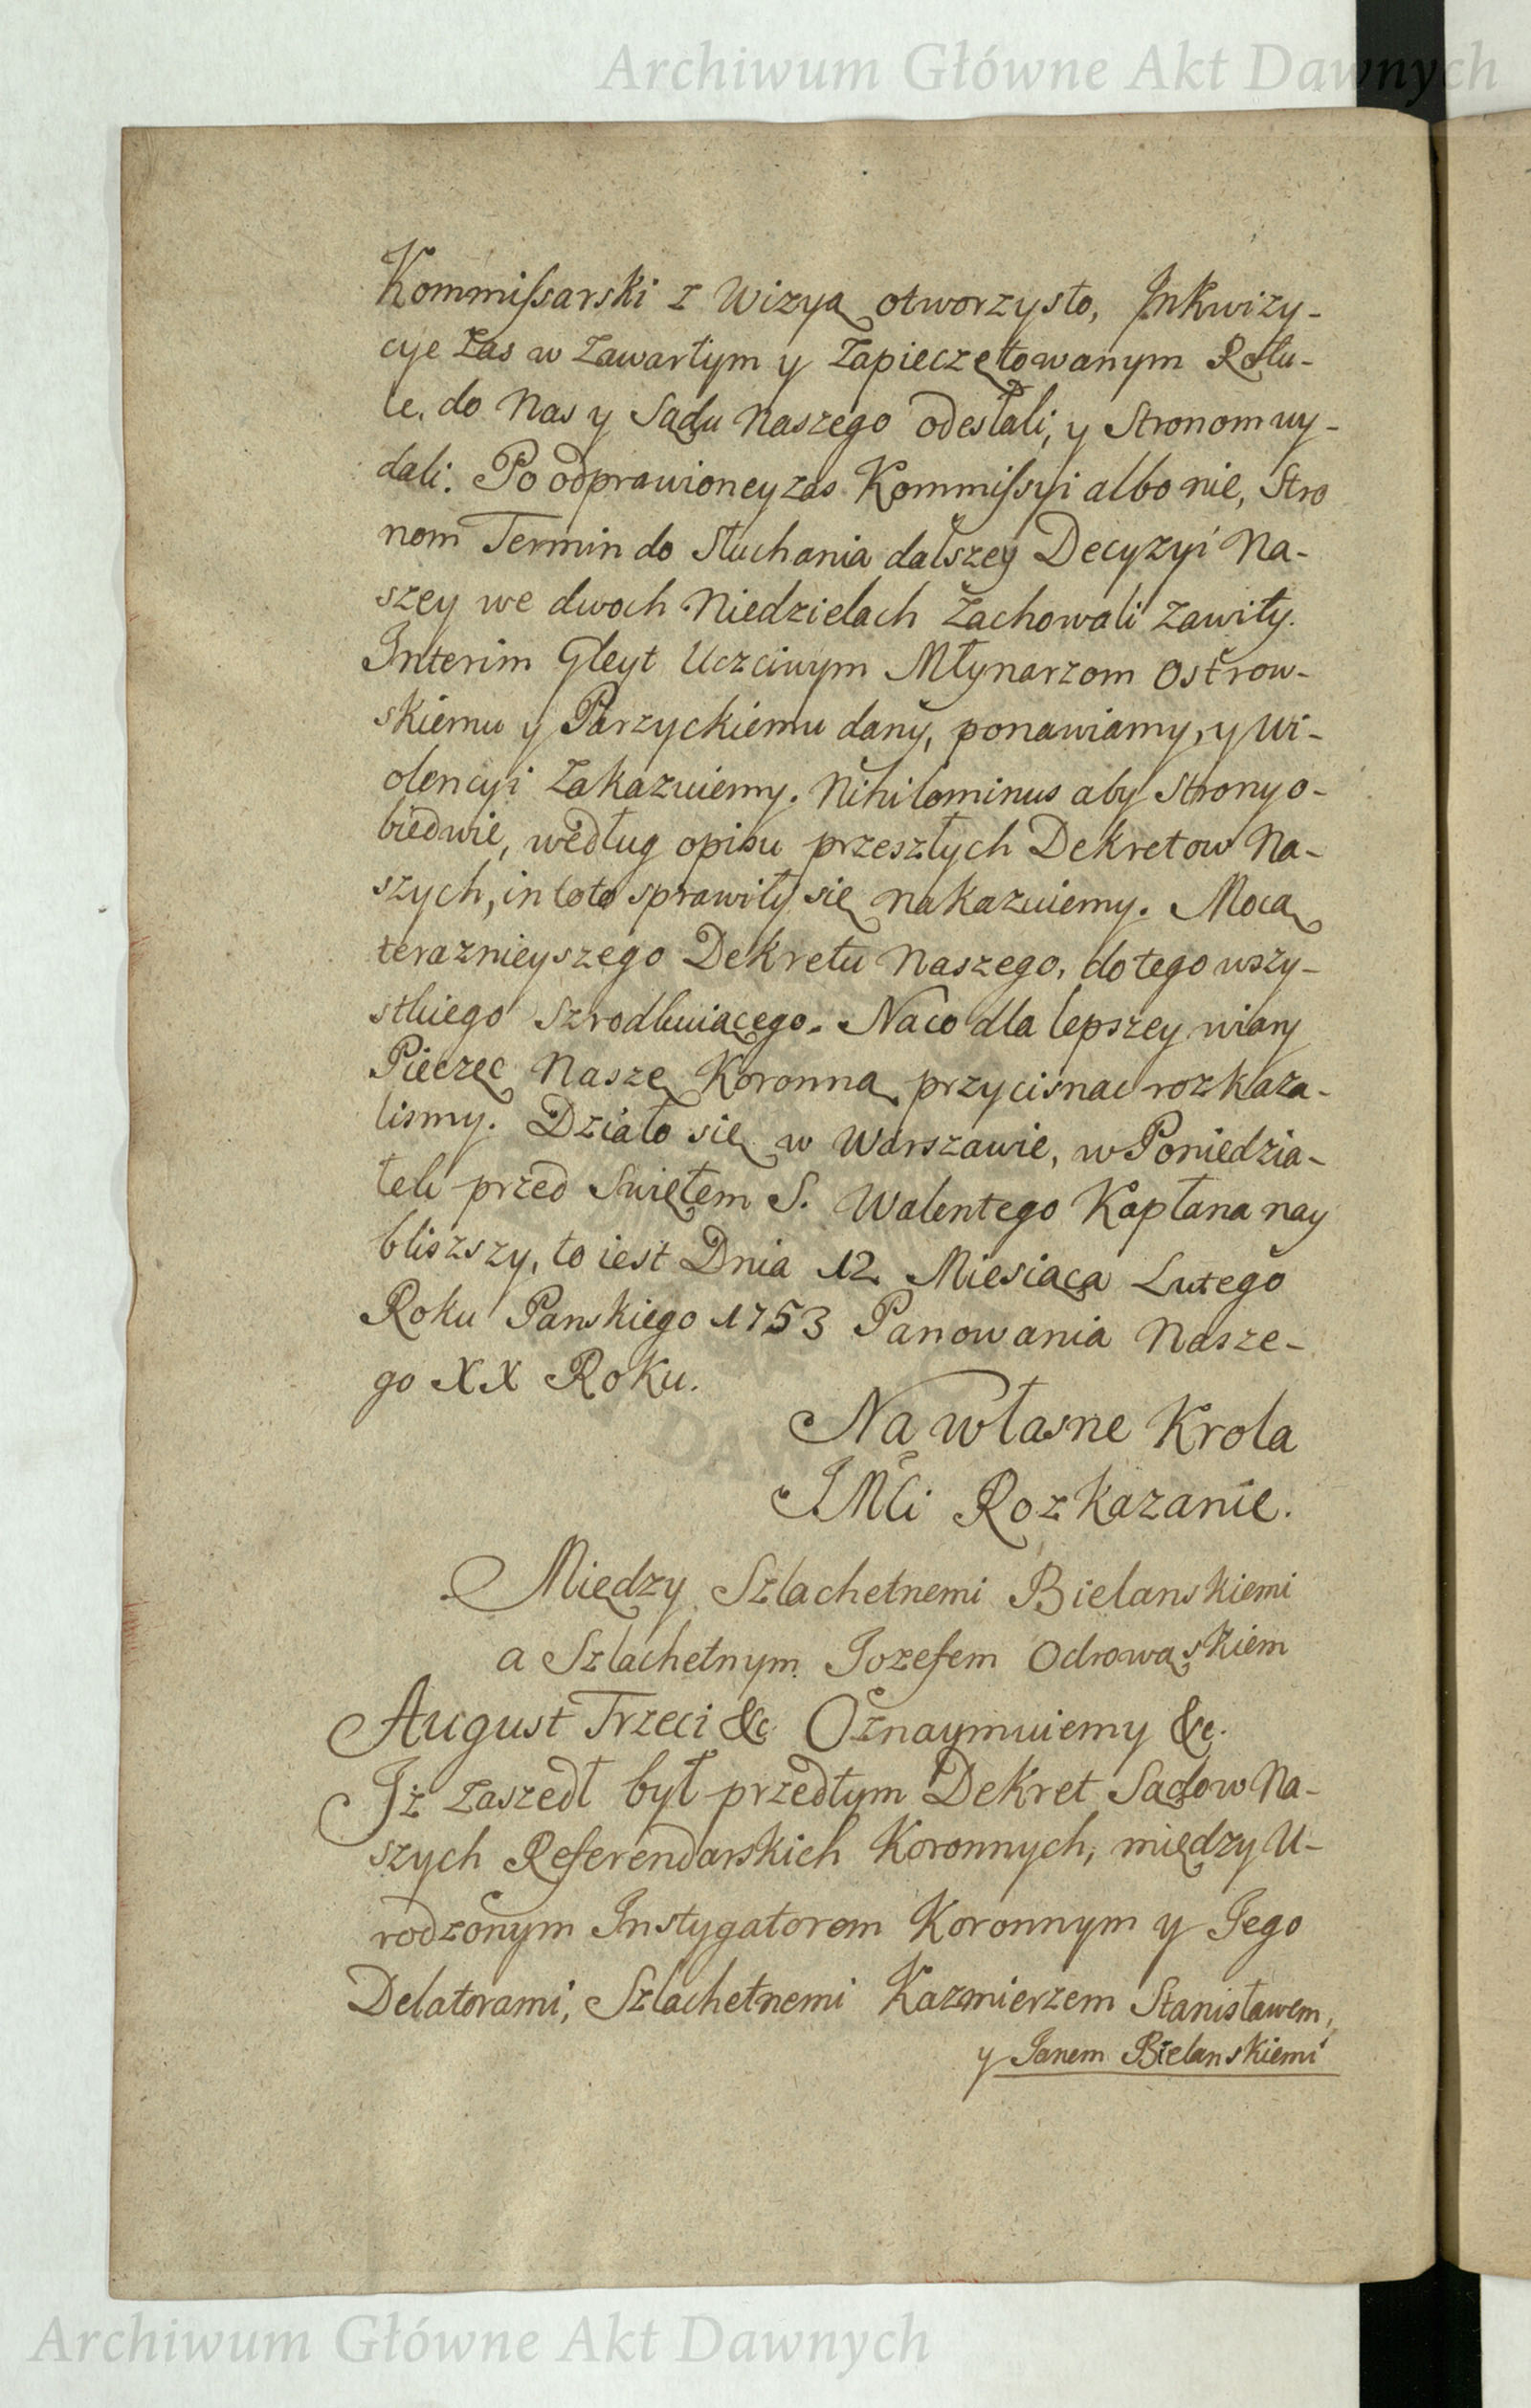 Archiwum Główne Akt Dawnych
Kommissarski z Wizyą otworzysto, Inkwizy-
cye zas w zawartym y zapieczętowanym Rotu-
le, do Nas y Sądu Naszego odesłali, y Stronom wy-
dali. Po odprawioney zas Kommissyi albo nie, Stro
nom Termin do słuchania dalszey Decyzyi Na-
szey we dwoch Niedzielach zachowali zawity.
Interim Gleyt Uczciwym Młynarzom Ostrow-
skiemu y Parzyckiemu dany, ponawiamy, y Wi-
olencyi zakazuiemy. Nihilominus aby Strony o-
biedwie, według opisu przeszłych Dekretow Na-
szych, in toto sprawiły się nakazuiemy. Mocą
teraznieyszego Dekretu Naszego, do tego wszy-
stkiego szrodkuiącego. Na co dla lepszey wiary
Pieczęc Naszę Koronną przycisnac rozkaza-
lismy. Działo się w Warszawie, w Poniedzia-
łek przed Swiętem S. Walentego Kapłana nay
bliszszy, to iest Dnia 12 Miesiąca Lutego
Roku Panskiego 1753 Panowania Nasze-
go XX Roku.
Na własne Krola
JMCi Rozkazanie.
Między Szlachetnemi Bielanskiemi
a Szlachetnym Jozefem Odrowąskiem
August Trzeci &c. Oznaymuiemy &c.
Iż zaszedł był przedtym Dekret Sądow Na-
szych Referendarskich Koronnych, między U-
rodzonym Instygatorem Koronnym y Jego
Delatorami, Szlachetnemi Kazmierzem Stanisławem,
y Janem Bielanskiemi
Archiwum Główne Akt Dawnych